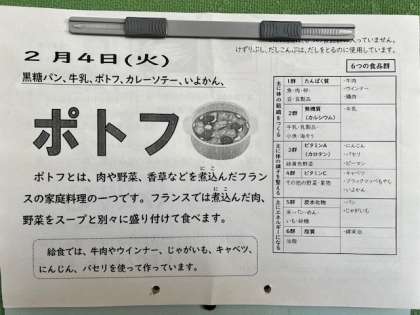 入っていません。
けずりぶし、だしこんぶは、だしをとるのに使用しています。
2月4日(火)
黒糖パン、牛乳、ポトフ、カレーソテー、いよかん、
ポトフ
ポトフとは、肉や野菜、香草などを煮込んだフラン
スの家庭料理の一つです。フランスでは煮込んだ肉、
野菜をスープと別々に盛り付けて食べます。
給食では、牛肉やウインナー、じゃがいも、キャベツ、
にんじん、パセリを使って作っています。
6つの食品群
主に体の組織をつくる
1群 たんぱく質
魚・肉・卵・
豆・豆製品
・牛肉
・ウインナー
・鶏肉
2群 無機質
(カルシウム)
牛乳・乳製品・
小魚・海そう
・牛乳
主に体の調子を整える
3群 ビタミンA
(カロテン)
緑黄色野菜
・にんじん
・パセリ
・ピーマン
4群 ビタミンC
その他の野菜・果物
・キャベツ
・ブラックマッペもやし
・いよかん
主にエネルギーになる
5群 炭水化物
米・パン・めん・
いも・砂糖
・パン
・じゃがいも
6群 脂質
油脂